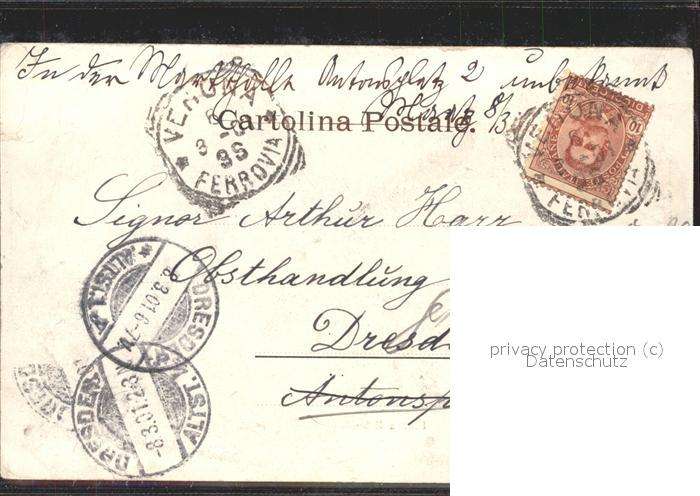 In der Markthalle Antonsplatz 2 unbekannt
8/3
Cartolina Postale.
VERONA
FERROVIA
FERROVIA
10
Signor Arthur Harr
Obsthandlung
Dresd
Antonsp
DRESDEN
ALTST. 1
8.3.01.6-7
DRESDEN
ALTST. 1
8.3.01.2-3
privacy protection (c)
Datenschutz